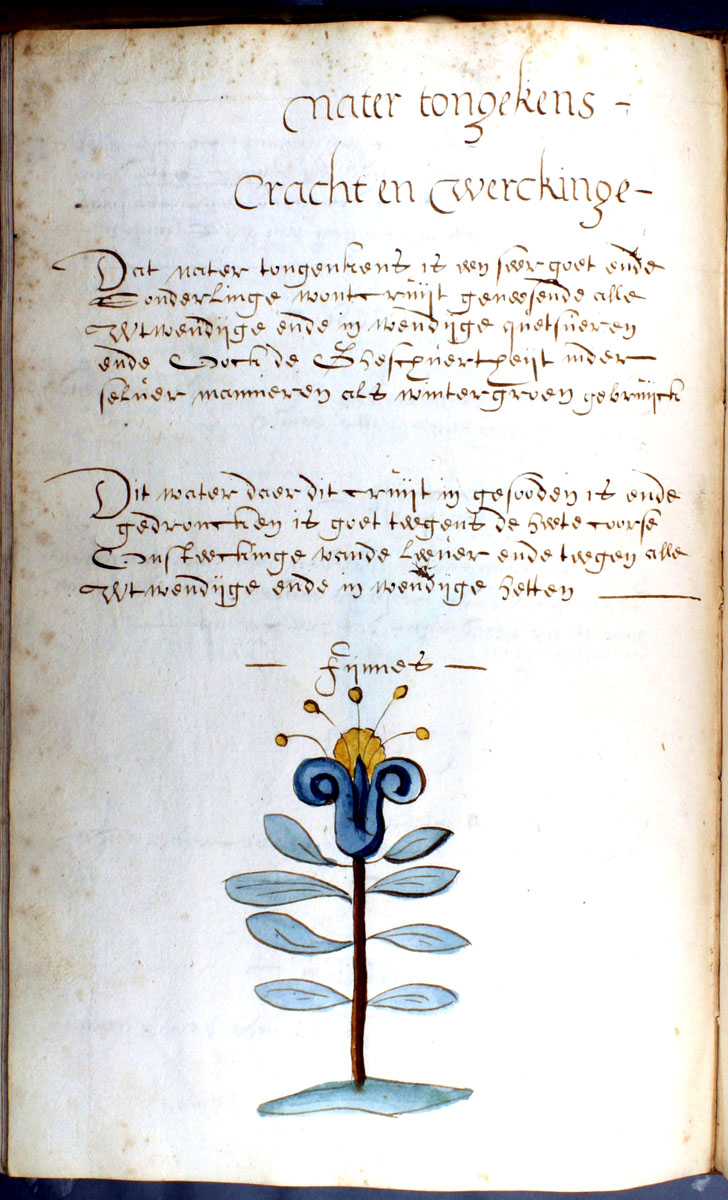 Nater tongekens -
Cracht en Werckinge -
Dat nater tongenkens is een seer goet ende
Sonderlinge wontcruijt geneesende alle
Wtwendijge ende in wendijge quetsueren
ende Oock de Ghescxuertheijt inder
seluer mannieren als wintergroen gebruijck
Dit water daer dit cruijt in gesooden is ende
gedroncken is goet teegens de heete coorse
Onsteeckinge vande Leever ende teegen alle
Wtwendijge ende in wendijge hetten
- Fijnnes -